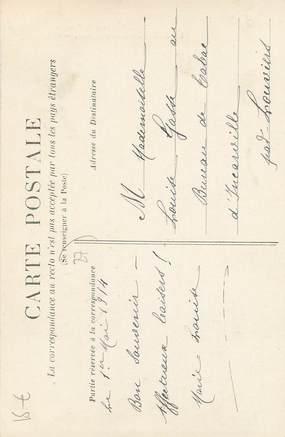 CARTE POSTALE
La correspondance au recto n'est pas acceptée par tous les pays étrangers
(Se renseigner à la Poste)
Partie réservée à la correspondance
Adresse du Destinataire
Le 1er Mai 1914
Bon Souvenir –
Affectueux baisers !
Marie Louise
M Mademoiselle
Louise Gosse au
Bureau de Tabac
d'Incarville
par Louviers
27
15 €